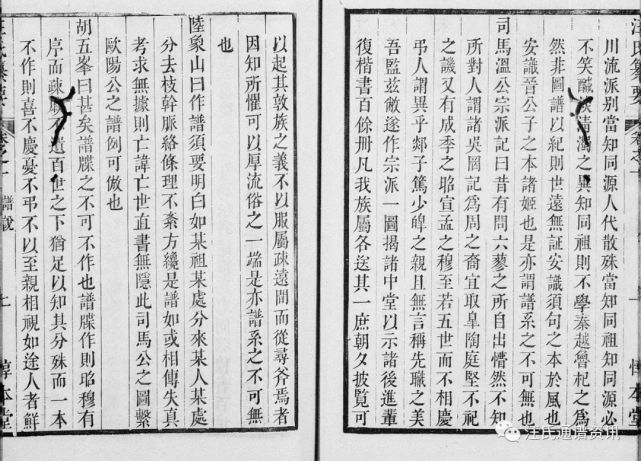 川流派別當知同源人代散殊當知同祖知同源必
不笑醎淡清濁之異知同祖則不學秦越譽杞之爲
然非圖譜以紀則世遠無証安識須句之本於風也
安識晉公子之本諸姬也是亦謂譜系之不可無也
司馬溫公宗派記曰昔有問六蓼之所自出懵然不知
所對人謂諸吳罔記爲周之裔宜取臯陶庭堅不祀
之譏又有成季之昭宣孟之穆至若五世而不相慶
弔人謂異乎郯子篤少皥之親且無言稱先職之美
吾監玆敝遂作宗派一圖揭諸中堂以示諸後進輩
復楷書百餘冊凡我族屬各送其一庶朝夕披覽可
以起其敦族之義不以服屬疎遠間而從尋斧焉者
因知所懼可以厚流俗之一端是亦譜系之不可無
也
陸象山曰作譜須要明白如某祖某處分來某人某處
分去枝幹脈絡條理不紊方纔是譜如或相傳失真
考求無據則亡諱亡世直書無隱此司馬公之圖繫
歐陽公之譜例可倣也
胡五峯曰甚矣譜牒之不可不作也譜牒作則昭穆有
序而疎不遺百世之下猶足以知其分殊而一本
不作則喜不慶憂不弔不以至親相視如途人者鮮
惇本堂
惇本堂
汪氏通譜资讯